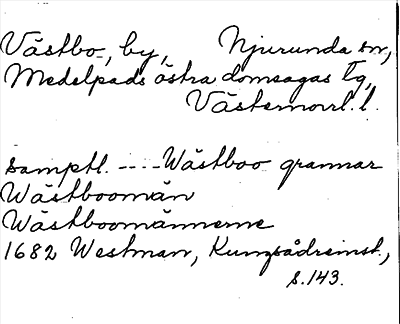 Västbo, by, Njurunda sn,
Medelpads östra domsagas tg,
Västernorrl. l.
samptl. ---- Wästboo grannar
Wästboomän
Wästboomännerne
1682 Westman, Kungsådreinst.,
s. 143.